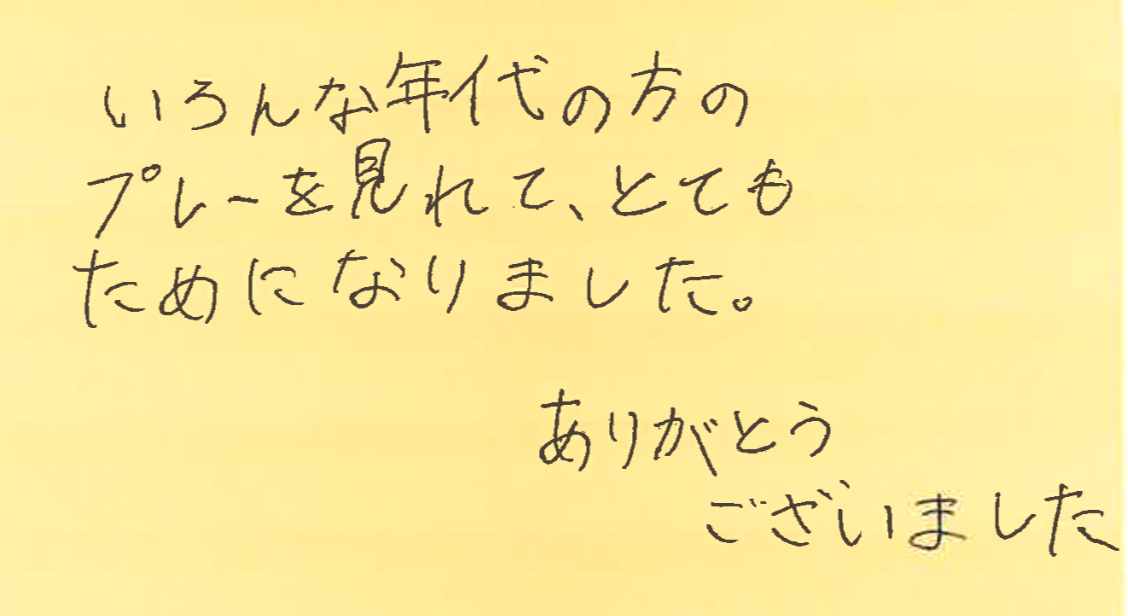 いろんな年代の方の
プレーを見れて、とても
ためになりました。
ありがとう
ございました